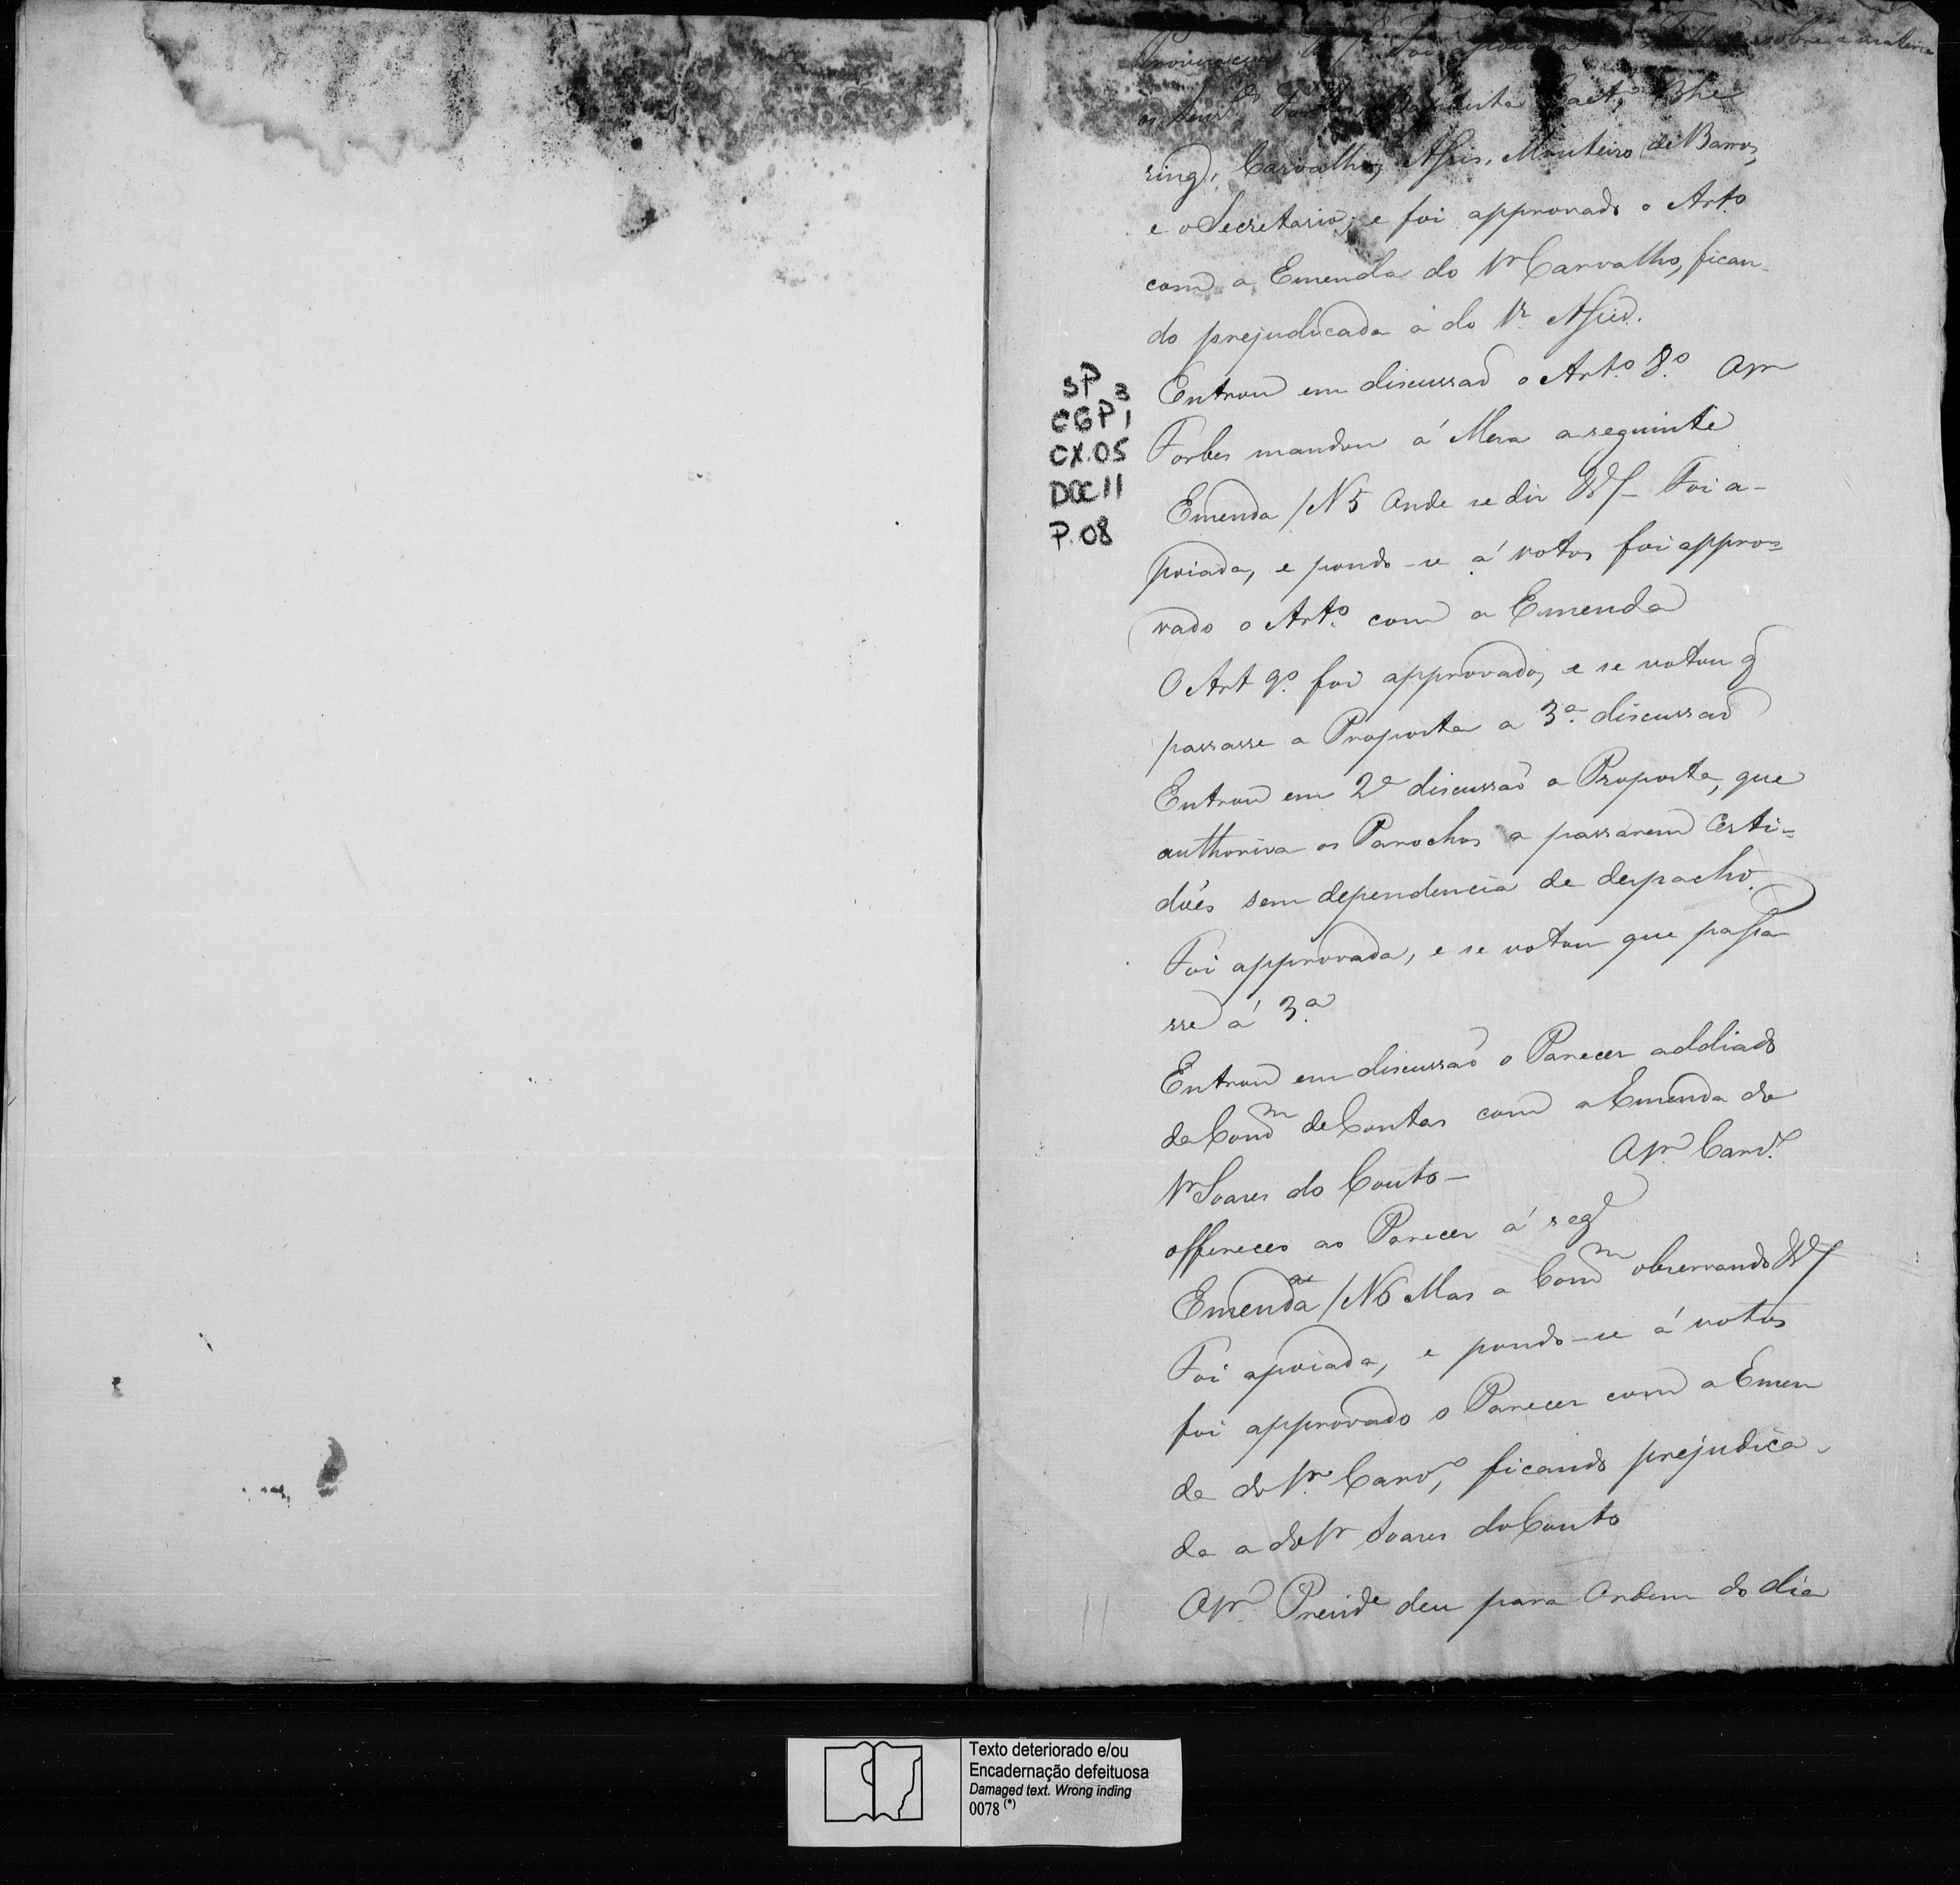 Foi apoiada sobre a materia
os Senr.es
ring, Carvalho, Assis, Monteiro de Barros,
e o Secretario; e foi approvado o Art.º
com a Emenda do Sr Carvalho, fican-
do prejudicada a do Sr. Assis.
Entrou em discussaõ o Art.º 8.º O Sr
Forbes mandou á Mesa a seguinte
Emenda / N 5 Onde se diz &/ - Foi a-
poiada, e pondo-se á votos foi appro=
vado o Art.º com a Emenda
O Art 9.º foi approvado, e se votou q̃
passasse a Proposta a 3.ª discussaõ
Entrou em 2ª discussaõ a Proposta, que
authoriza os Parochos a passarem Certi=
dões sem dependencia de despacho.
Foi approvada, e se votou que passa
sse á 3.ª
Entrou em discussaõ o Parecer addiado
da Com.m de Contas com a Emenda do
Sr Soares do Couto - O Sr Carv.º
offereceo ao Parecer á seg.e
Emenda / N 6 Mas a Com.m observando &/
Foi apoiada, e pondo-se á votos
foi approvado o Parecer com a Emen
da do Sr. Carv.º, ficando prejudica-
da a do Sr Soares do Couto
O Sr. Presid.e deu para Ordem do dia
SP 3
CGP 1
CX.05
DOC 11
P.08
11
Texto deteriorado e/ou
Encadernação defeituosa
Damaged text. Wrong inding
0078 (*)